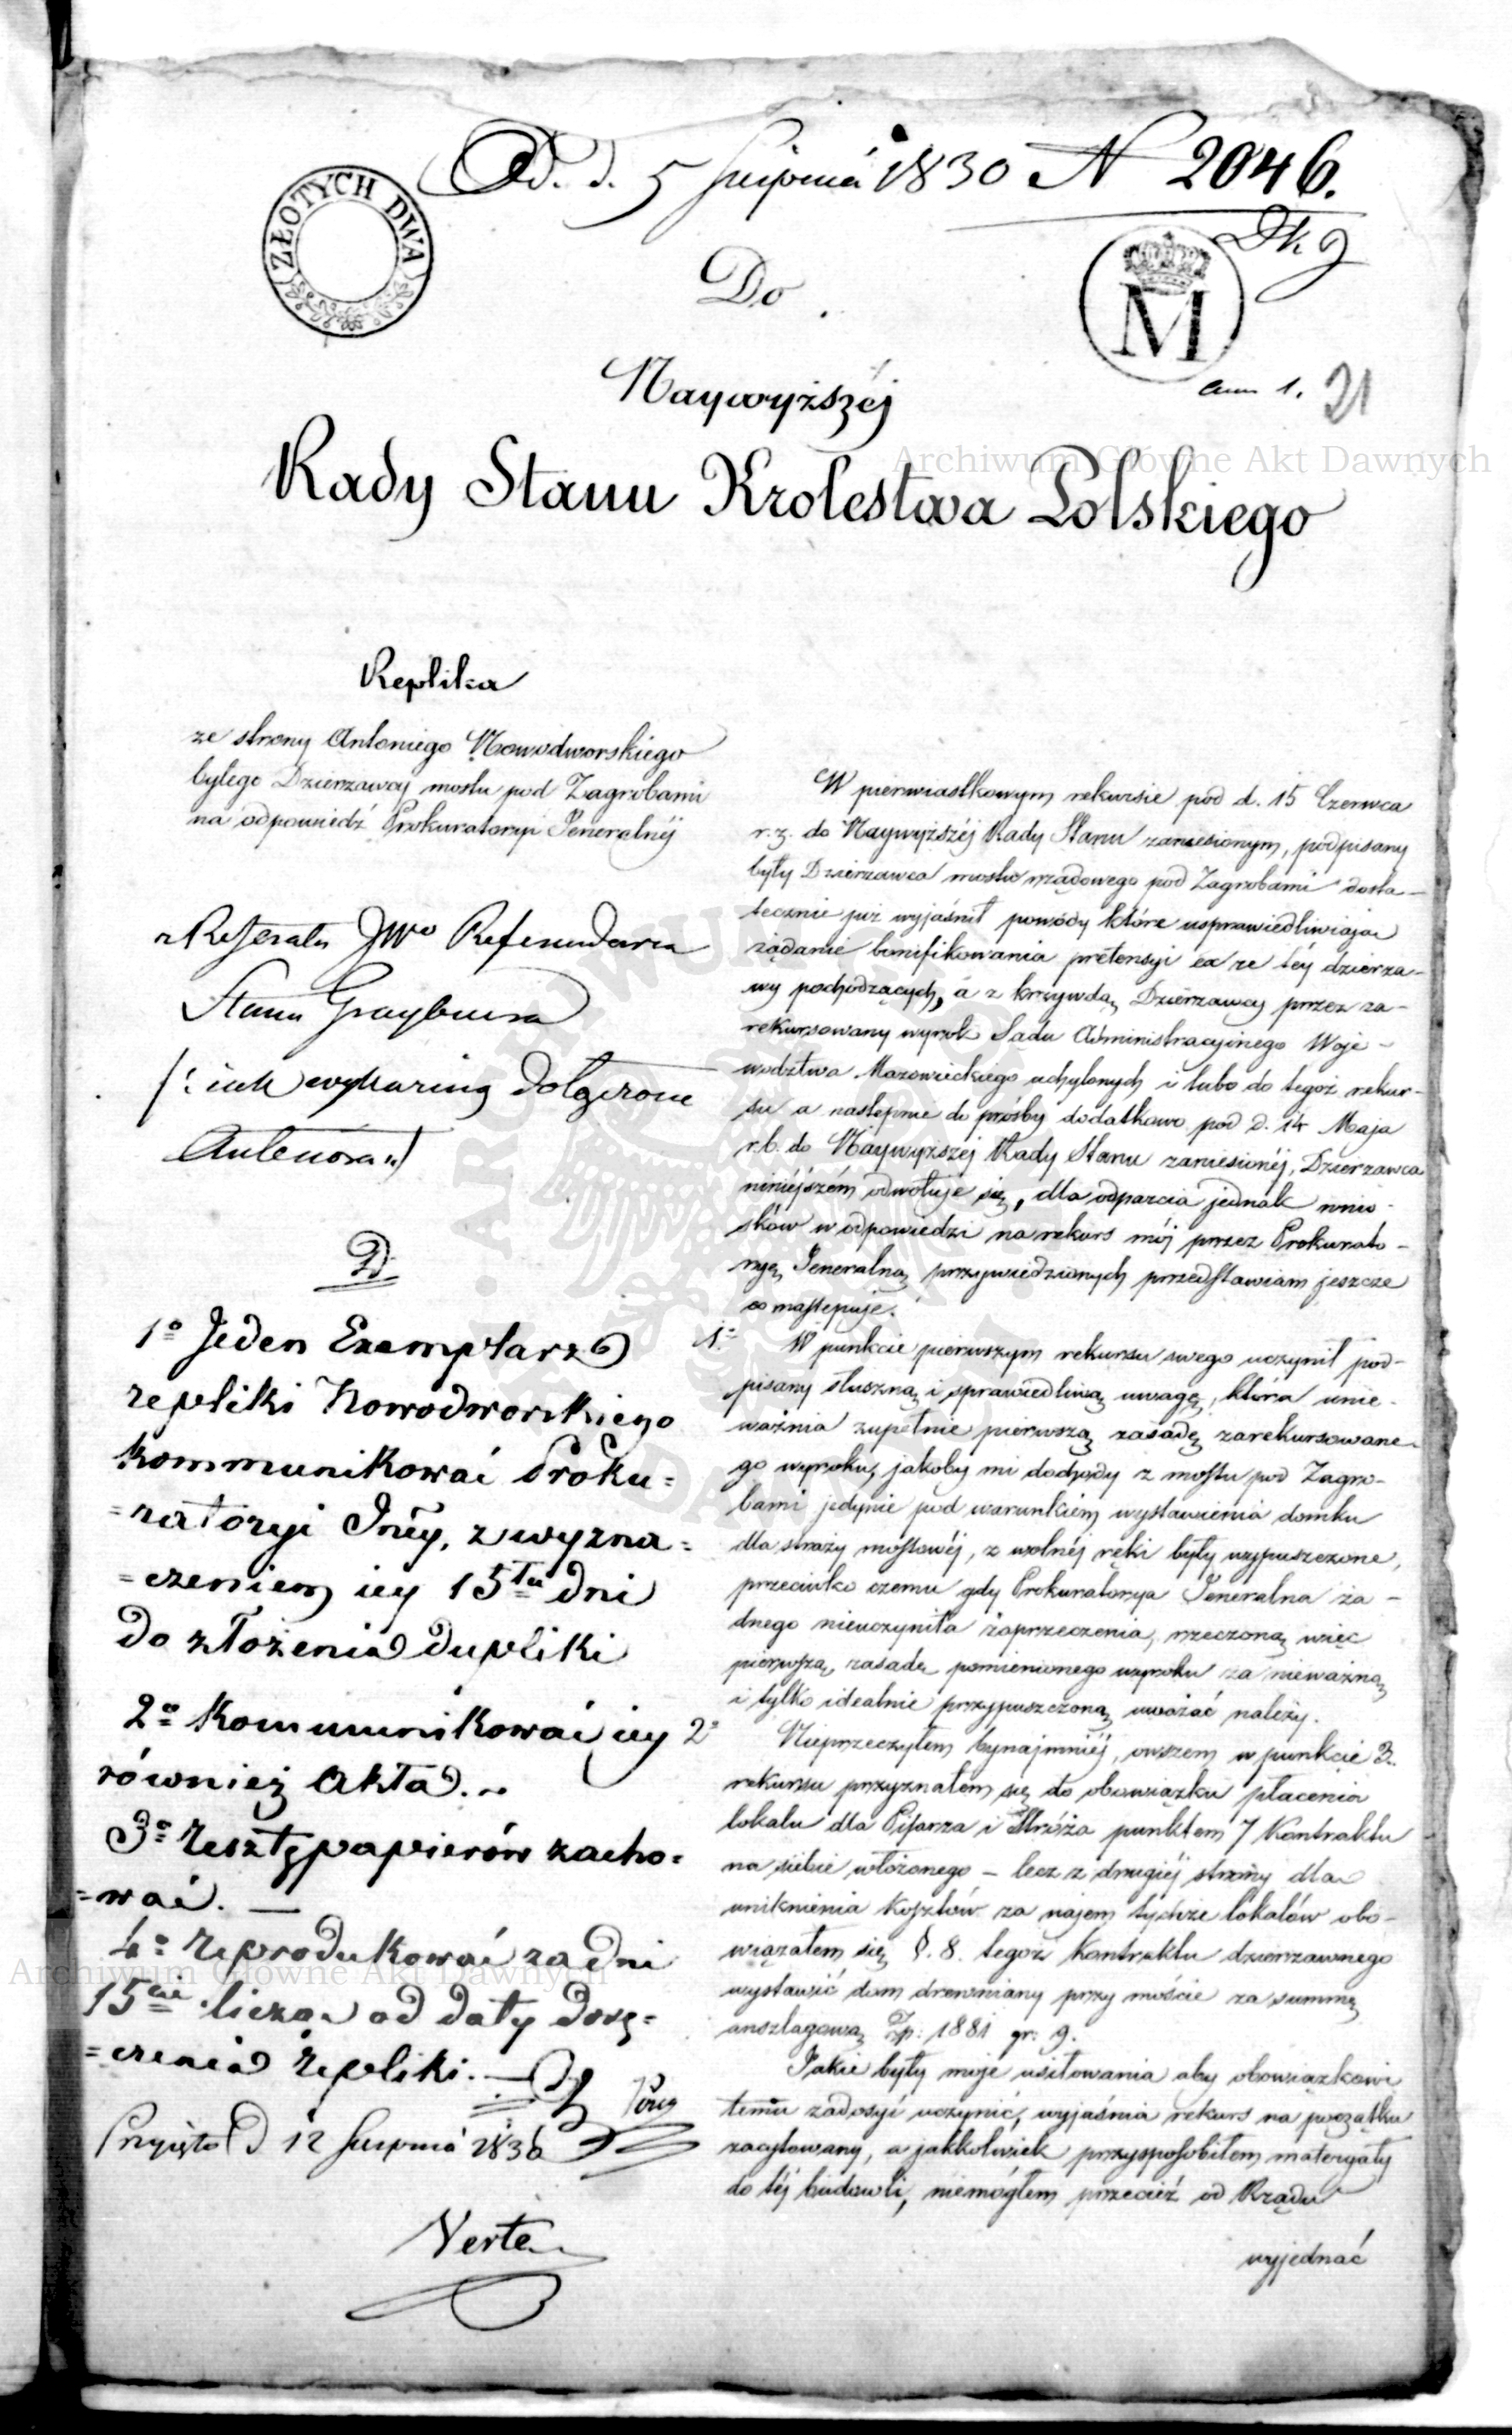 Od. d. 5 Sierpnia 1830 N 2046.
ZŁOTYCH DWA
M
Do
ann 1. 21
Naywyższéj
Rady Stanu Krolestwa Polskiego
Archiwum Główne Akt Dawnych
Replika
ze strony Antoniego Nowodworskiego
byłego Dzierzawcy mostu pod Zagrobami
na odpowiedź Prokuratoryi Jeneralnéj
z Referatu JWo Referendarza
Stanu Graybnera
Autenora
D
1o Jeden Exemplarz
repliki Nowodworskiego
kommunikować Proku=
=ratoryi Jnéy, z wyzna=
=czeniem iey 15tu dni
do złożenia dupliki
2o Kommunikować iey
również Akta.
3o Resztę papierów zacho=
=wać. —
4o Reprodukować za dni
15cie licząc od daty dorę=
=czenia repliki. —
Przyięto d 12 Sierpnia 1830
Verte
W pierwiastkowym rekursie pod d. 15 Czerwca
r. z. do Naywyższéj Rady Stanu zaniesionym, podpisany
były Dzierzawca mostu rządowego pod Zagrobami dosta-
tecznie już wyjaśnił powody które usprawiedliwiają
żądanie bonifikowania pretensyi ex re téy dzierza-
wy pochodzących, a z krzywdą Dzierzawcy przez za-
rekursowany wyrok Sądu Administracyjnego Woje-
wodztwa Mazowieckiego uchylonych i lubo do tegoż rekur-
su a następnie do prośby dodatkowo pod d. 14 Maja
r. b. do Naywyższej Rady Stanu zaniesionéj, Dzierzawca
niniéjszém odwołuje się, dla odparcia jednak wnio-
sków w odpowiedzi na rekurs mój przez Prokurato-
ryę Jeneralną przywiedzionych przedstawiam jeszcze
co następuje.
1o W punkcie pierwszym rekursu swego uczynił pod-
pisany słuszną i sprawiedliwą uwagę, która unie-
ważnia zupełnie pierwszą zasadę zarekursowane-
go wyroku, jakoby mi dochody z mostu pod Zagro-
bami jedynie pod warunkiem wystawienia domku
dla straży mostowéj, z wolnéj ręki były wypuszczone,
przeciwko czemu gdy Prokuratorya Jeneralna ża-
dnego nieuczyniła zaprzeczenia, rzeczoną więc
pierwszą zasadę pomienionego wyroku za nieważną
i tylko idealnie przypuszczoną uważać należy.
2o Nieprzeczyłem bynajmniéj, owszem w punkcie 3.
rekursu przyznałem się do obowiązku płacenia
lokalu dla Pisarza i Stróża punktem 7 Kontraktu
na siebie włożonego – lecz z drugiéj strony dla
uniknienia kosztów za najem tychże lokalów obo-
wiązałem się §. 8. tegoż kontraktu dzierzawnego
wystawić dom drewniany przy moście za summę
anszlagową Zp: 1881 gr: 9.
Jakie były moje usiłowania aby obowiązkowi
temu zadosyć uczynić, wyjaśnia rekurs na początku
zacytowany, a jakkolwiek przysposobiłem materyały
do téj budowli, niemógłem przecież od Rządu
wyjednać
Archiwum Główne Akt Dawnych